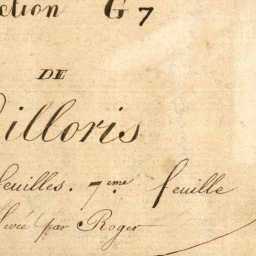 ction G 7
DE
illoris
feuilles. 7eme feuille
par Roger